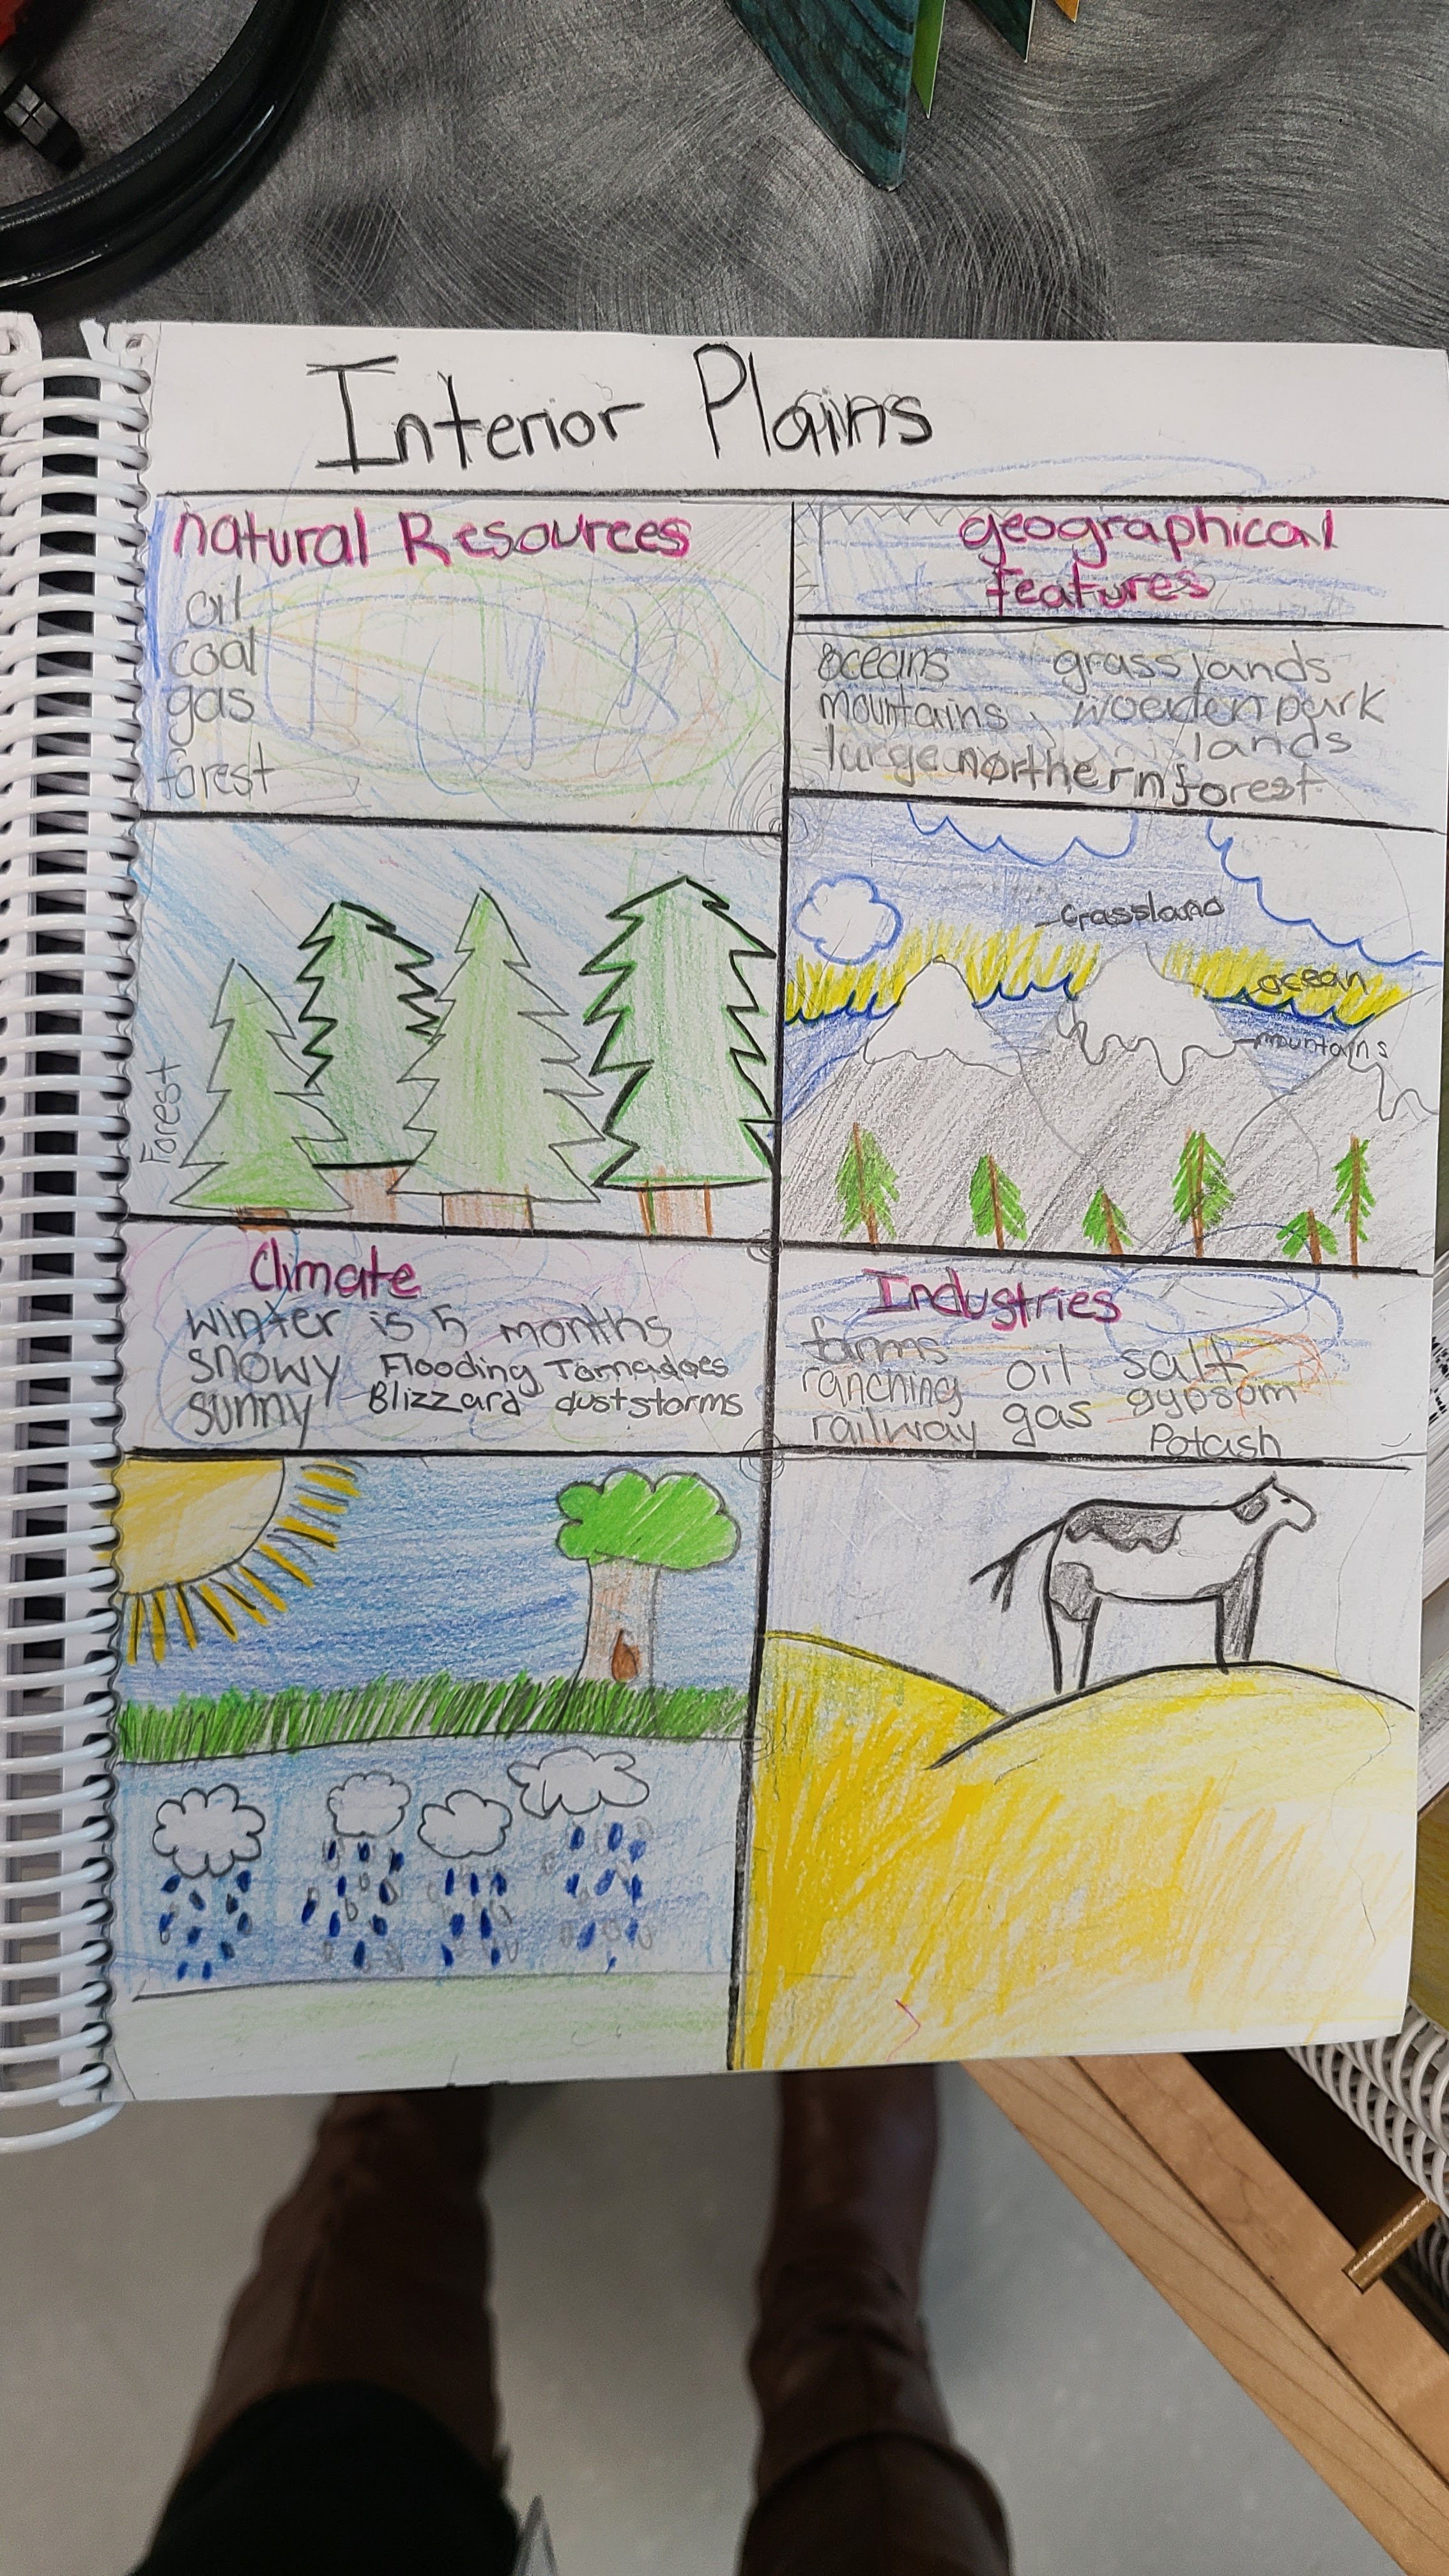 Interior Plains
natural Resources
oil
coal
gas
forest
geographical
features
oceans grasslands
mountains, wooden park
lands
large northern forest
Forest
Grassland
ocean
mountains
Climate
winter is 5 months
snowy Flooding Tornadoes
sunny Blizzard duststorms
Industries
farms oil salt
ranching gas gypsom
railway Potash